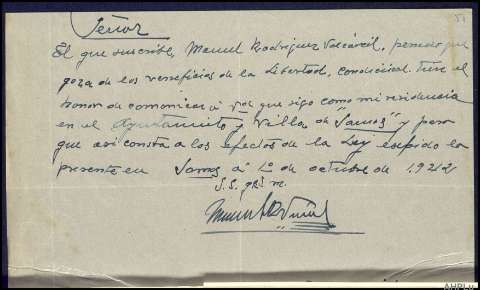 Señor
El que suscribe, Manuel Rodriguez Valcárcil, penado que
goza de los veneficios de la Libertad, condicional. Tiene el
honor de comonicar á Vd que sigo como mi residencia
en el Ayuntamiento y Villa de "Samos" y para
que asi consta a los efectos de la Ley espido la
presente en Samos á 1º de octubre de 1922
S.S. q es m.
AHPLu